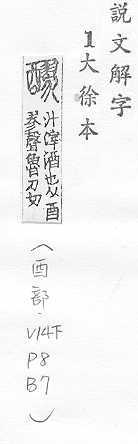 説文解字
1大徐本
醪
汁滓酒也从酉
翏聲魯刀切
(酉部．V14下
P8
B7)